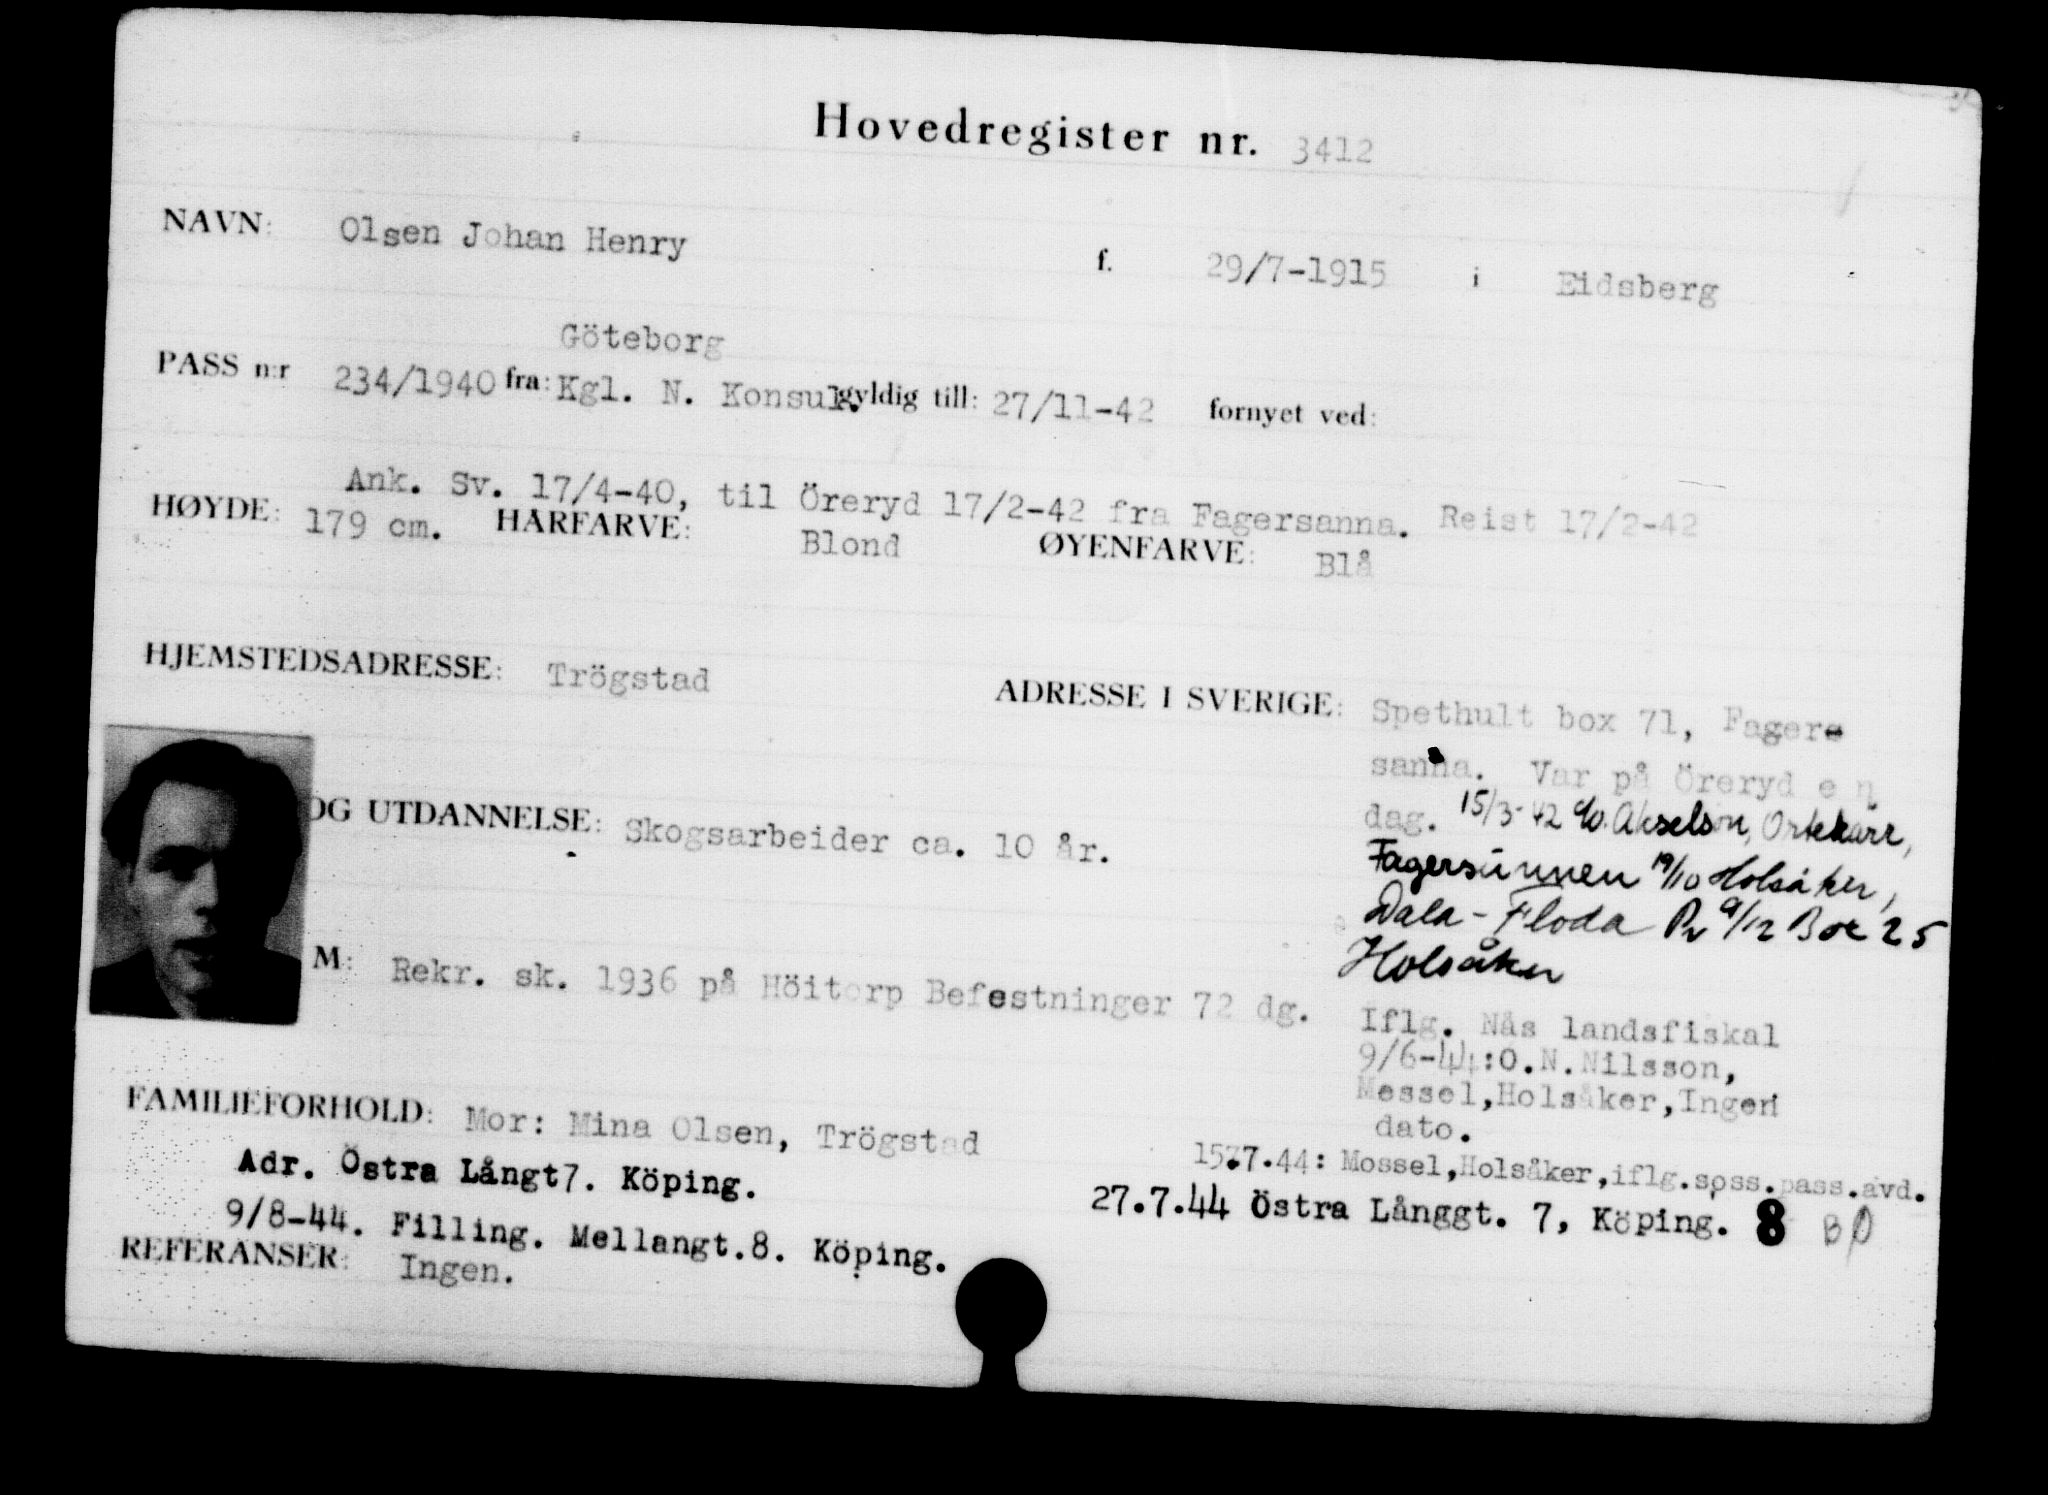 Hovedregister nr. 3412
NAVN: Olsen Johan Henry f. 29/7-1915 i Eidsberg
Göteborg
PASS n:r 234/1940 fra: Kgl. N. Konsul. gyldig till: 27/11-42 fornyet ved:
Ank. Sv. 17/4-40, til Öreryd 17/2-42 fra Fagersanna. Reist 17/2-42
HØYDE: 179 cm. HÅRFARVE: Blond ØYENFARVE: Blå
HJEMSTEDSADRESSE: Trögstad
ADRESSE I SVERIGE: Spethult box 71, Fagere
sanna. Var på Öreryd en
dag. 15/3-42 c/o. Akselson, Ortekärr,
Fagersunnen 19/10 Holsåker,
Dala-Floda Pr 9/12 Box 25
Holsåker
OG UTDANNELSE: Skogsarbeider ca. 10 år.
M: Rekr. sk. 1936 på Höitorp Befestninger 72 dg.
Iflg. Nås landsfiskal
9/6-44:O.N.Nilsson,
Messel,Holsåker,Ingen
dato.
FAMILIEFORHOLD: Mor: Mina Olsen, Trögstad
15.7.44: Mossel,Holsåker,iflg.spss.pass.avd.
Adr. Östra Långt7. Köping.
27.7.44 Östra Långgt. 7, Köping. 8 BØ
9/8-44. Filling. Mellangt.8. Köping.
REFERANSER: Ingen.